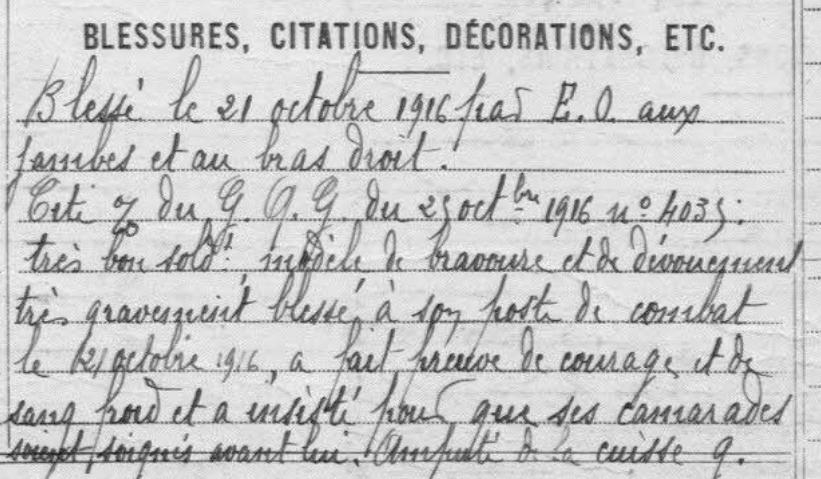 BLESSURES, CITATIONS, DÉCORATIONS, ETC.
Blessé le 21 octobre 1916 par E.O. aux
jambes et au bras droit.
Cité du G.Q.G. du 25 octbre 1916 nº 4035:
très bon soldt modèle de bravoure et de dévouement
très gravement blessé, à son poste de combat
le 21 octobre 1916, a fait preuve de courage et de
sang froid et a insisté pour que ses camarades
soient soignés avant lui. Amputé de la cuisse g.